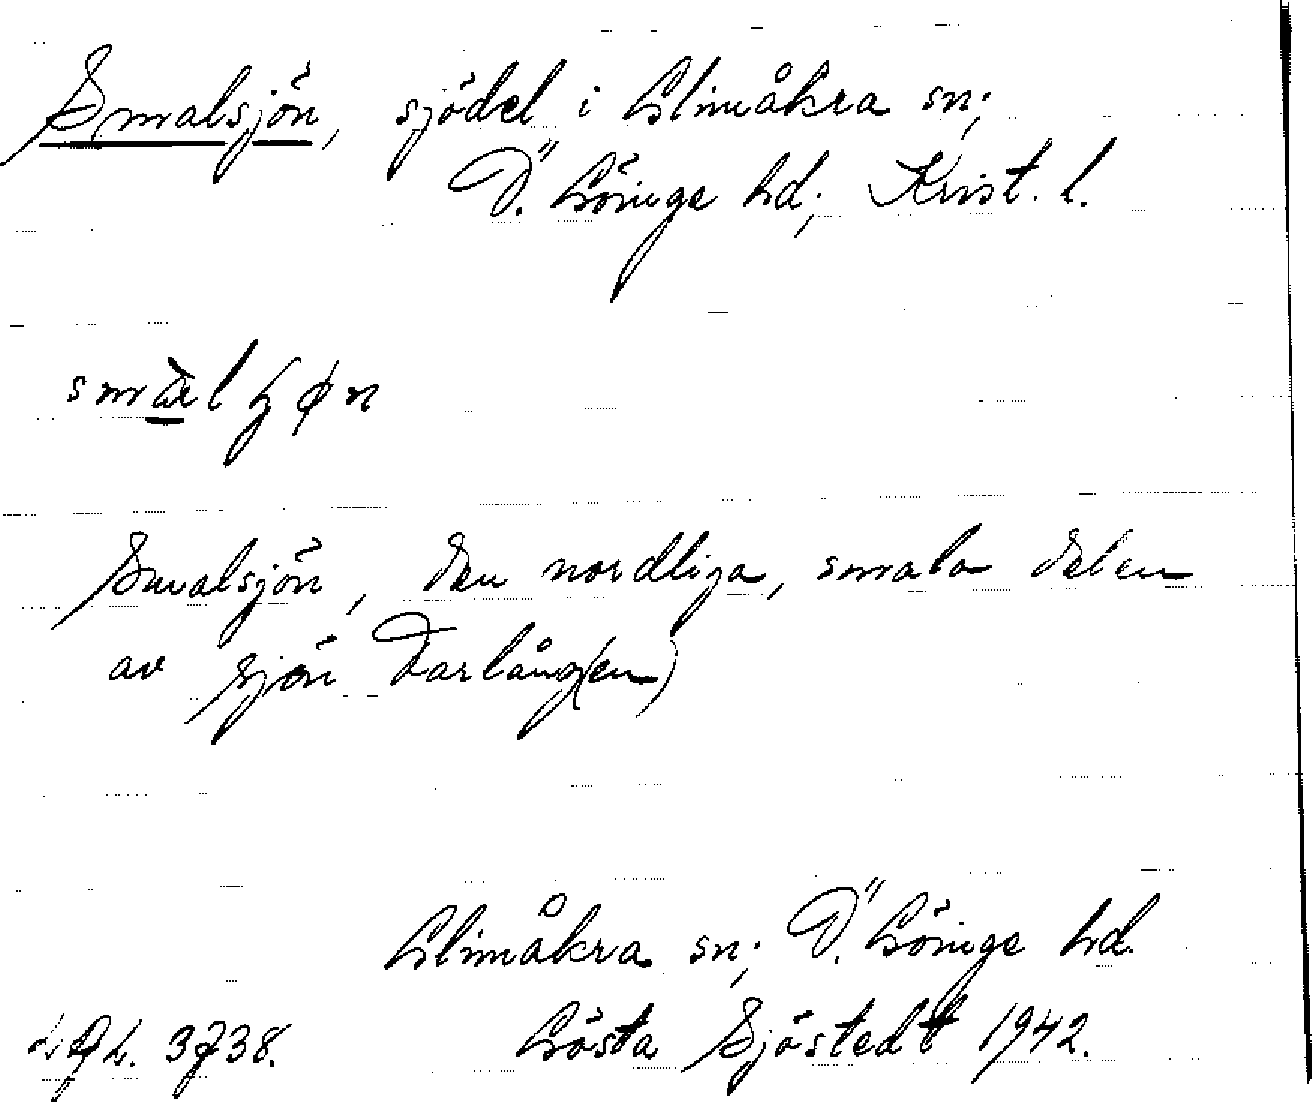 Smalsjön, sjödel i Glimåkra sn;
Ö. Göinge hd; Krist. l.
Smalsjön, den nordliga, smala delen
av sjön Tarlång(en)
Glimåkra sn; Ö. Göinge hd.
3738.
Gösta Sjöstedt 1942.